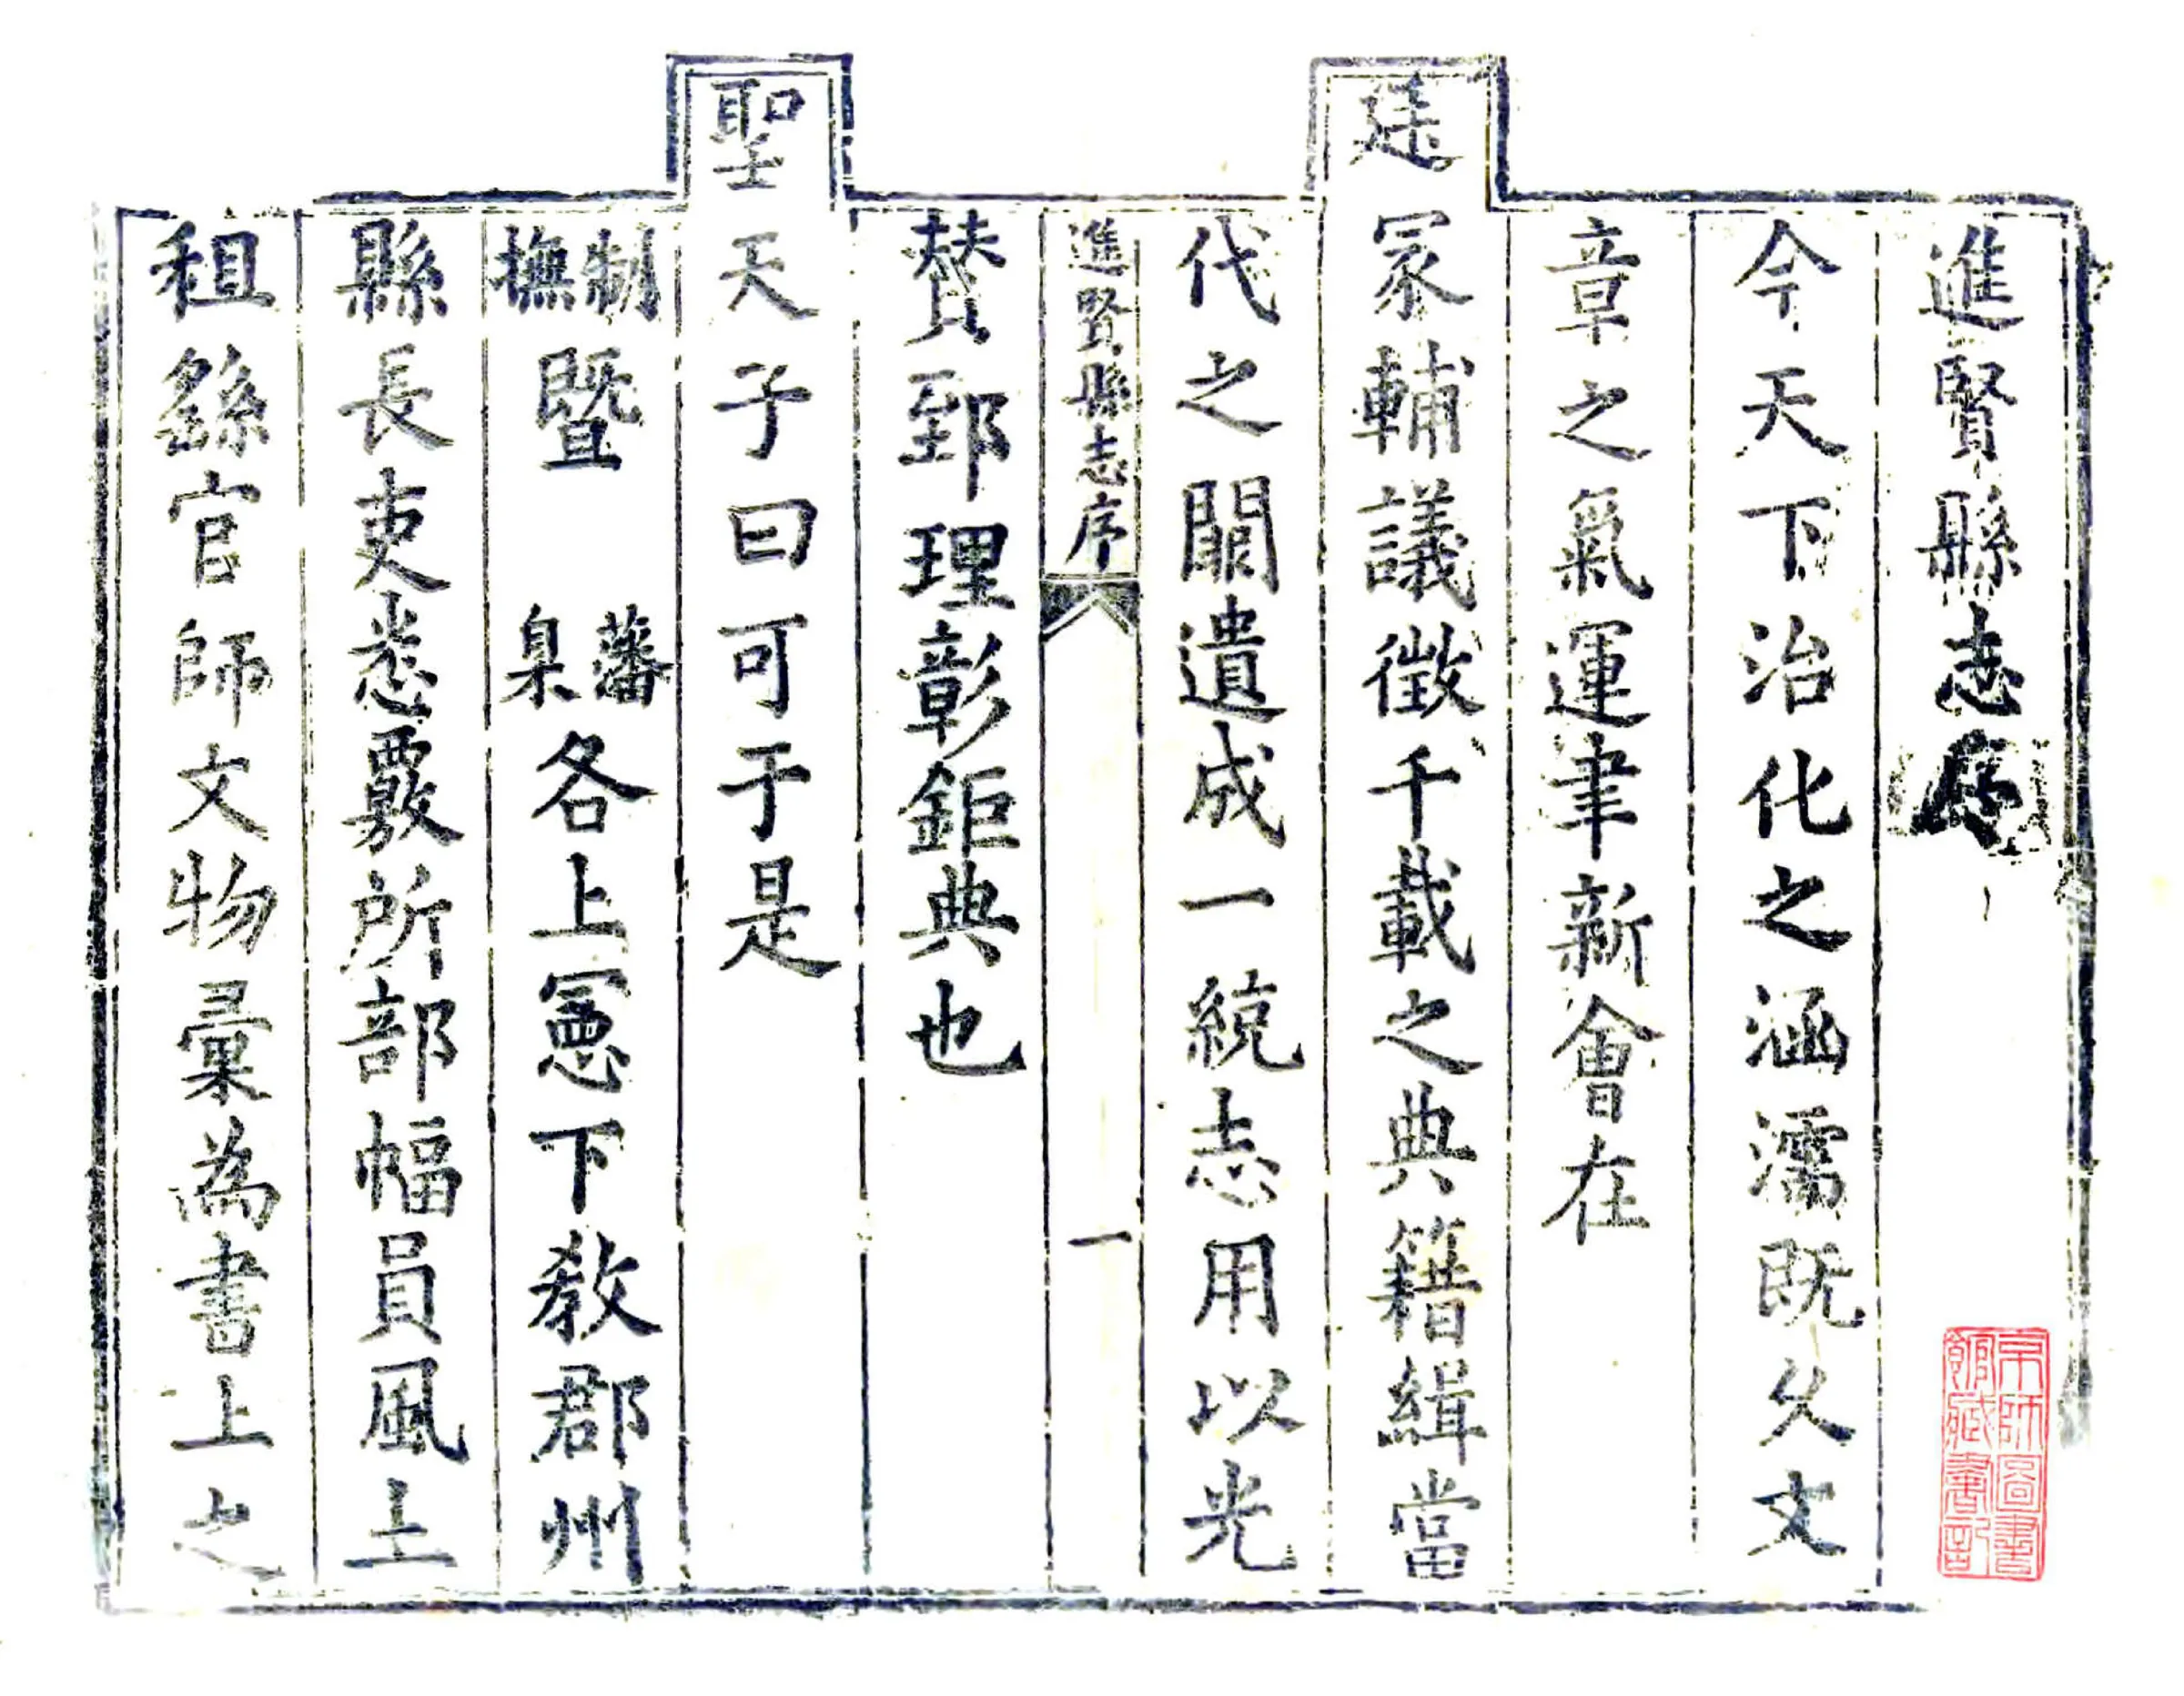 進賢縣志序
今天下治化之涵濡既久文
章之氣運聿新會在
廷冢輔議徵千載之典籍緝當
代之闕遺成一統志用以光
進賢縣志序 一
賛郅理彰鉅典也
聖天子曰可于是
制撫暨藩臬各上憲下敎郡州
縣長吏悉覈所部幅員風土
租繇官師文物彙為書上之
京師圖書館藏書記